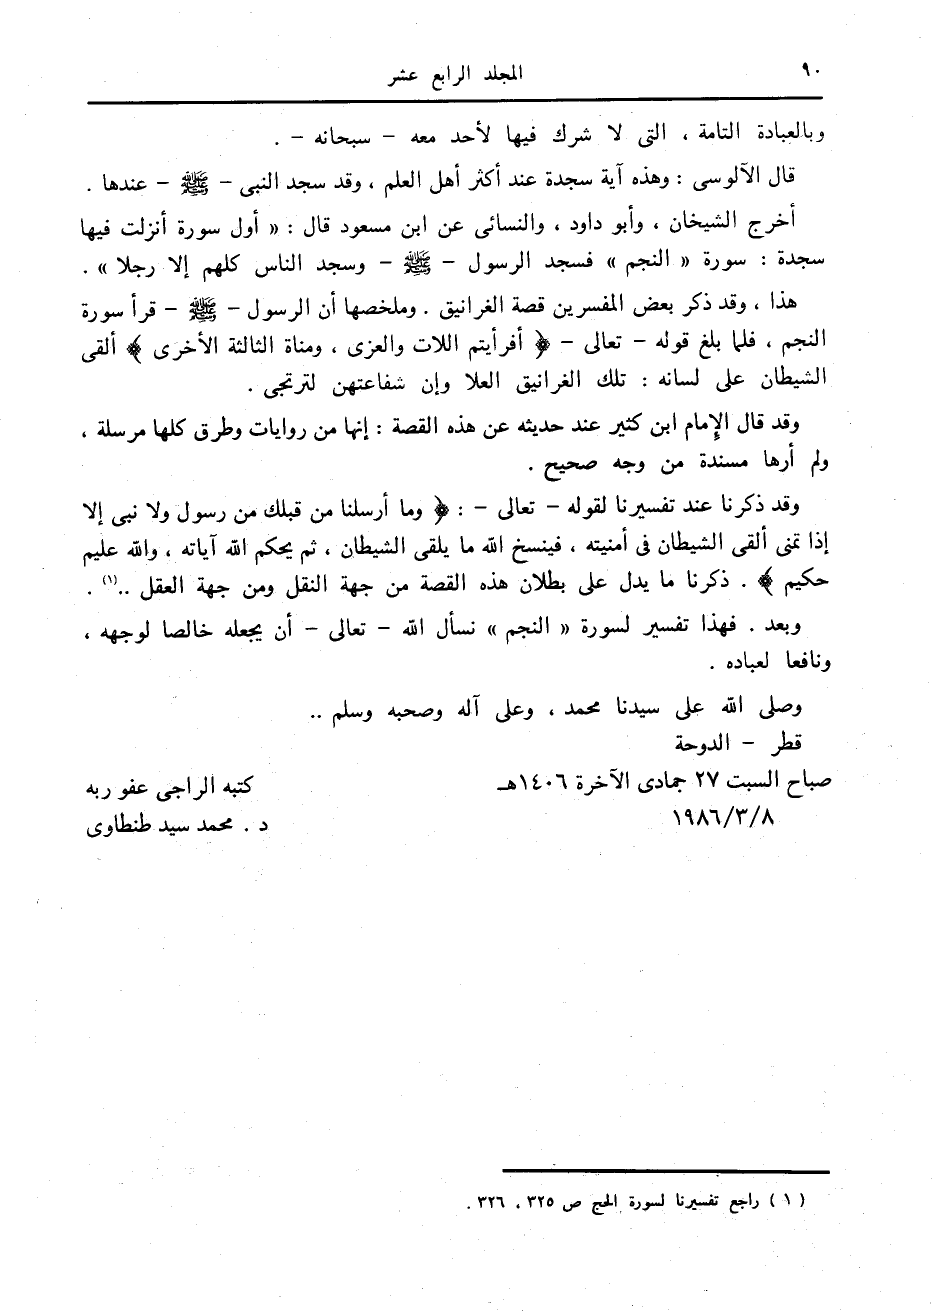 ٩٠
المجلد الرابع عشر
وبالعبادة التامة ، التى لا شرك فيها لأحد معه – سبحانه – .
قال الآلوسى : وهذه آية سجدة عند أكثر أهل العلم ، وقد سجد النبى – ﷺ – عندها .
أخرج الشيخان ، وأبو داود ، والنسائى عن ابن مسعود قال : « أول سورة أنزلت فيها
سجدة : سورة « النجم » فسجد الرسول – ﷺ – وسجد الناس كلهم إلا رجلا » .
هذا ، وقد ذكر بعض المفسرين قصة الغرانيق . وملخصها أن الرسول – ﷺ – قرأ سورة
النجم ، فلما بلغ قوله – تعالى – ﴿ أفرأيتم اللات والعزى ، ومناة الثالثة الأخرى ﴾ ألقى
الشيطان على لسانه : تلك الغرانيق العلا وإن شفاعتهن لترتجى .
وقد قال الإمام ابن كثير عند حديثه عن هذه القصة : إنها من روايات وطرق كلها مرسلة ،
ولم أرها مسندة من وجه صحيح .
وقد ذكرنا عند تفسيرنا لقوله – تعالى – : ﴿ وما أرسلنا من قبلك من رسول ولا نبى إلا
إذا تمنى ألقى الشيطان فى أمنيته ، فينسخ الله ما يلقى الشيطان ، ثم يحكم الله آياته ، والله عليم
حكيم ﴾ . ذكرنا ما يدل على بطلان هذه القصة من جهة النقل ومن جهة العقل ..(١) .
وبعد . فهذا تفسير لسورة « النجم » نسأل الله – تعالى – أن يجعله خالصا لوجهه ،
ونافعا لعباده .
وصلى الله على سيدنا محمد ، وعلى آله وصحبه وسلم ..
قطر – الدوحة
صباح السبت ٢٧ جمادى الآخرة ١٤٠٦هـ
كتبه الراجى عفو ربه
١٩٨٦/٣/٨
د . محمد سيد طنطاوى
( ١ ) راجع تفسيرنا لسورة الحج ص ٣٢٥ ، ٣٢٦ .